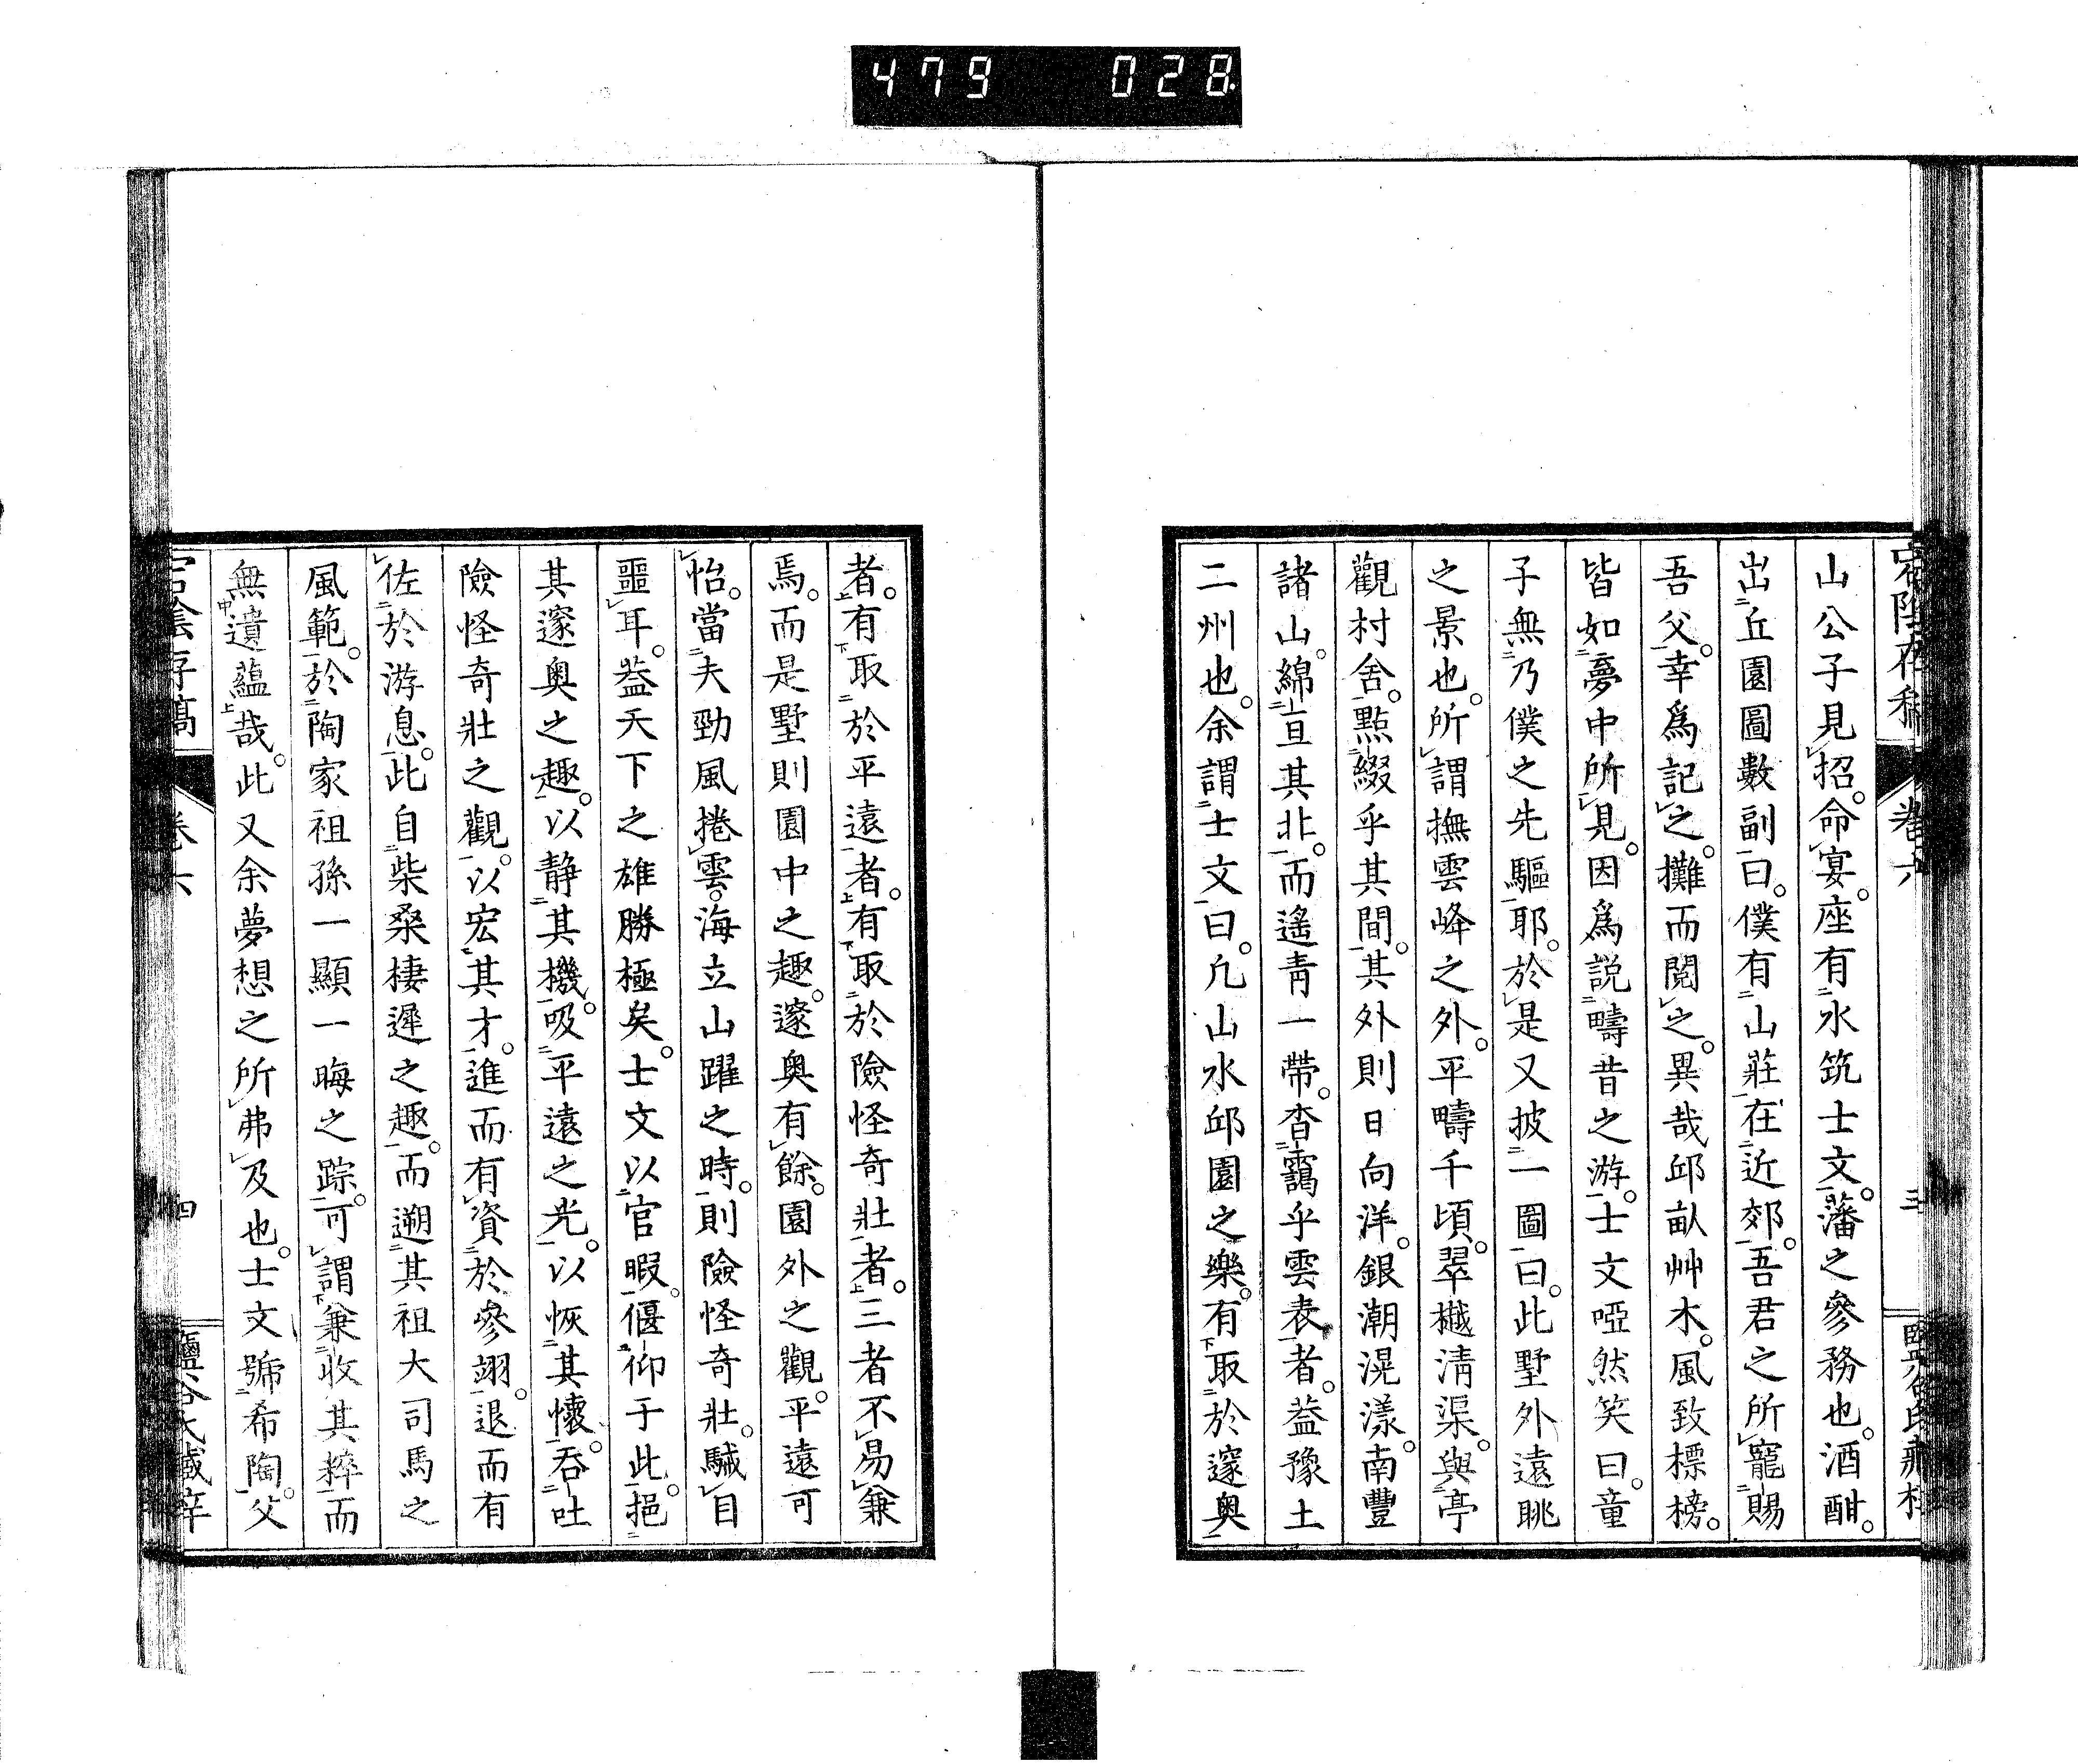 479 028
山公子見招。命宴。座有水筑士文。藩之參務也。酒酣。
出丘園圖數副曰。僕有山莊在近郊。吾君之所寵賜
吾父。幸爲記之。攤而閱之。異哉邱畝艸木。風致標榜。
皆如夢中所見。因爲説疇昔之游。士文啞然笑曰。童
子無乃僕之先驅耶。於是又披一圖曰。此墅外遠眺
之景也。所謂撫雲峰之外。平疇千頃。翠樾清渠。與亭
觀村舍。點綴乎其間。其外則日向洋。銀潮滉漾。南豐
諸山。綿亘其北。而遙青一帶。杳靄乎雲表者。葢豫土
二州也。余謂士文曰。凢山水邱園之樂。有取於邃奥
者。有取於平遠者。有取於險怪奇壯者。三者不易兼
焉。而是墅則園中之趣。邃奥有餘。園外之觀。平遠可
怡。當夫勁風捲雲。海立山躍之時。則險怪奇壯。駴目
噩耳。葢天下之雄勝極矣。士文以官暇。偃仰于此。挹
其邃奥之趣。以静其機。吸平遠之光。以恢其懷。吞吐
險怪奇壯之觀。以宏其才。進而有資於參翊。退而有
佐於游息。此自柴桑棲遲之趣。而遡其祖大司馬之
風範。於陶家祖孫一顯一晦之踪。可謂兼收其粹而
無遺蘊哉。此又余夢想之所弗及也。士文號希陶。父
卷六
四